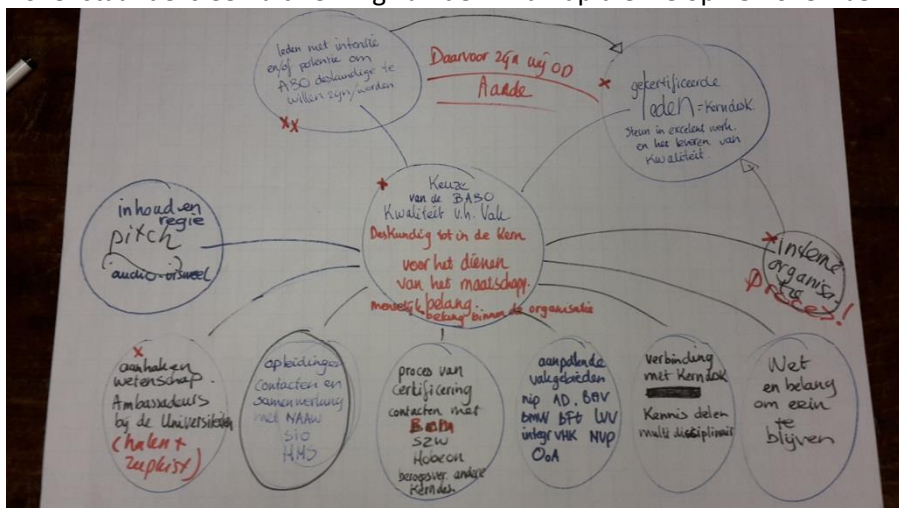 leden met intentie
en/of potentie om
A&O deskundige te
willen zijn/worden
xx
Daarvoor zijn wij OD
Aarde
x
gekertificeerde
leden = Kerndesk.
Steun in excelent werk.
en het leveren van
kwaliteit.
x
Keuze
van de BA&O
Kwaliteit v.h. Vak
Deskundig tot in de Kern
voor het dienen
van het maatschapp.
belang.
menselijk belang binnen de organisatie
inhoud en
regie
pitch
(audio-visueel)
x interne
organisa
tie
proces!
x
aanhaken
wetenschap.
Ambassadeurs
bij de Universiteiten
(halen +
zeepkist)
opleidingen
contacten en
samenwerking
met NAAW
SIO
HMS
proces van
certificering
contacten met
SZW
Hobeon
beroepsver. andere
Kerndes.
aanpalende
vakgebieden
nip AD. B&V
BMW BFt LVV
integr VHK NVP
OoA
verbinding
met Kerndsk
Kennis delen
multi disciplinair
Wet
en belang
om erin
te
blijven